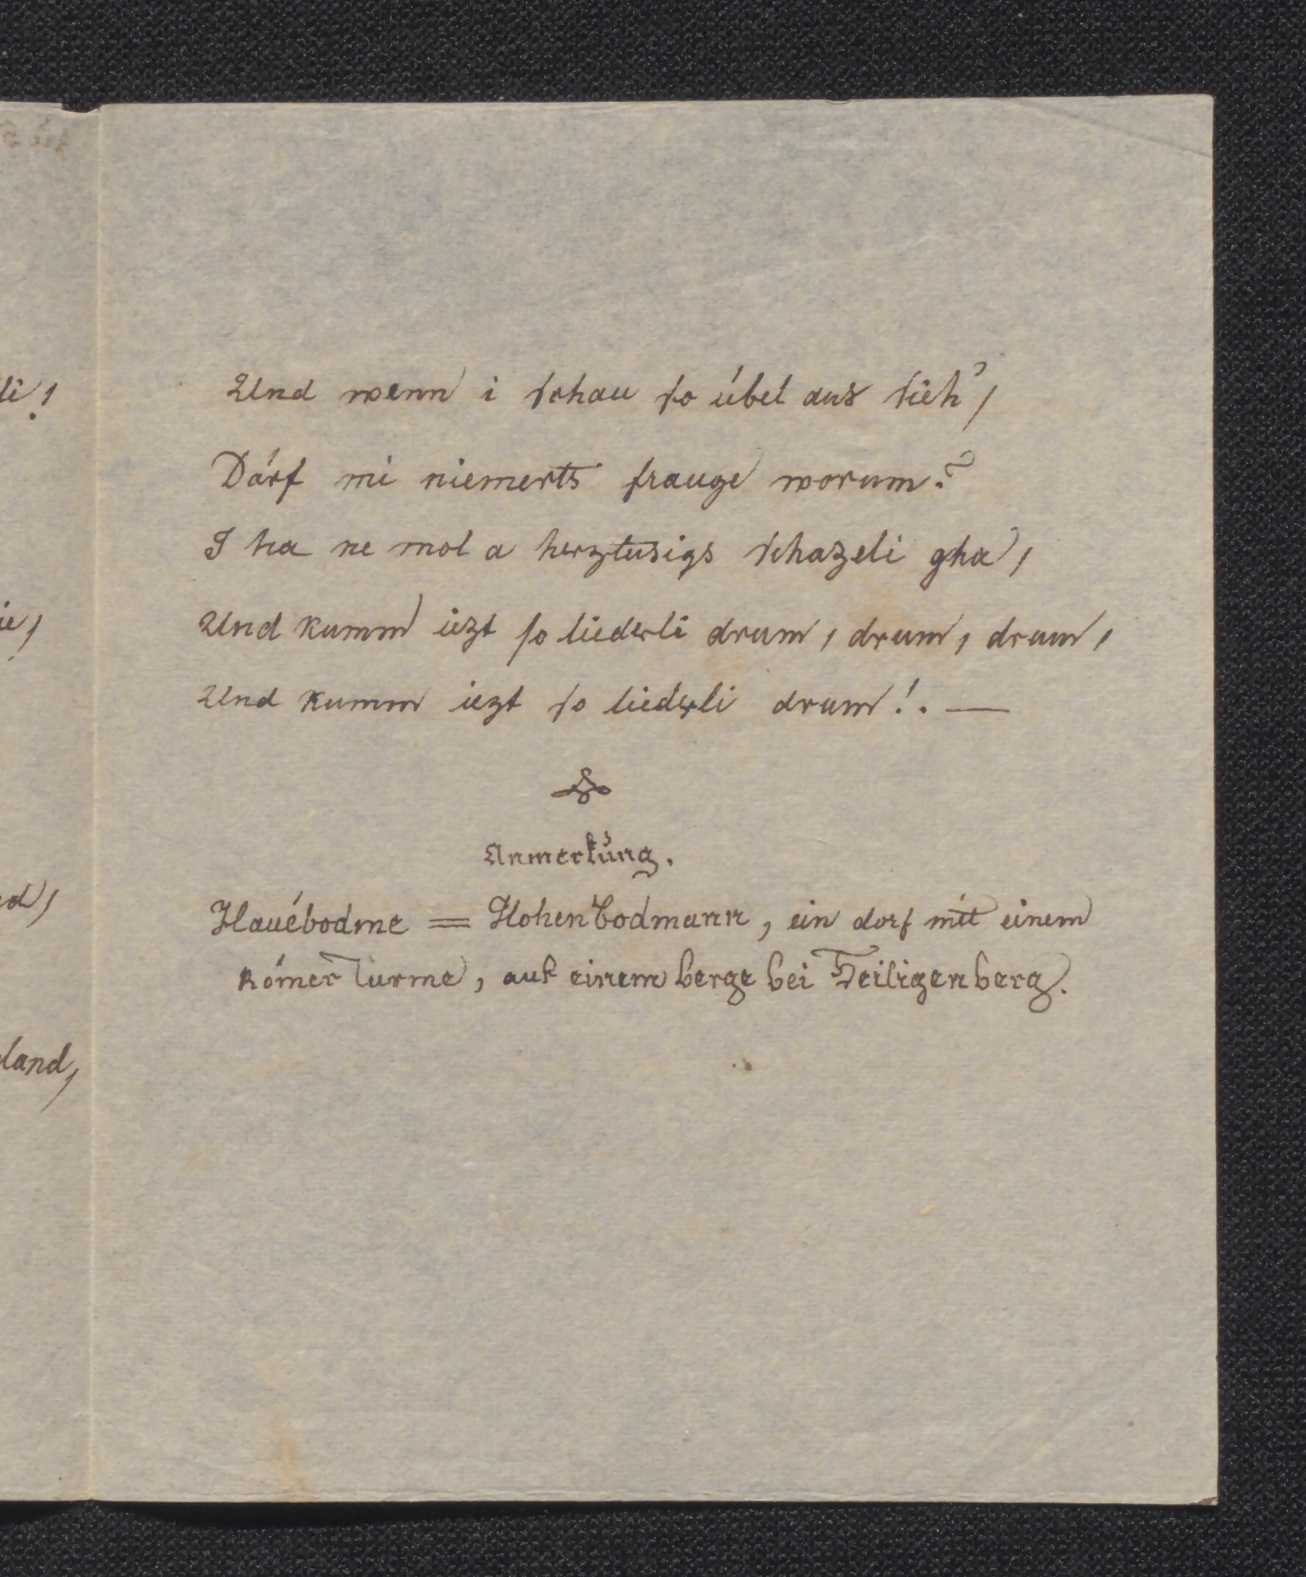 Und wenn i schau so übel aus sieh',
Därf mi niemerts frauge worum?
I ha ne mol a herztusigs schazeli gha,
Und kumm iezt so liederli drum, drum, drum,
Und kumm iezt so liederli drum!. —
Anmerkung.
Hauébodme = Hohenbodmann, ein dorf mit einem
Römer Turme, auf einem berge bei Heiligenberg.
li!
ie,
d,
land,